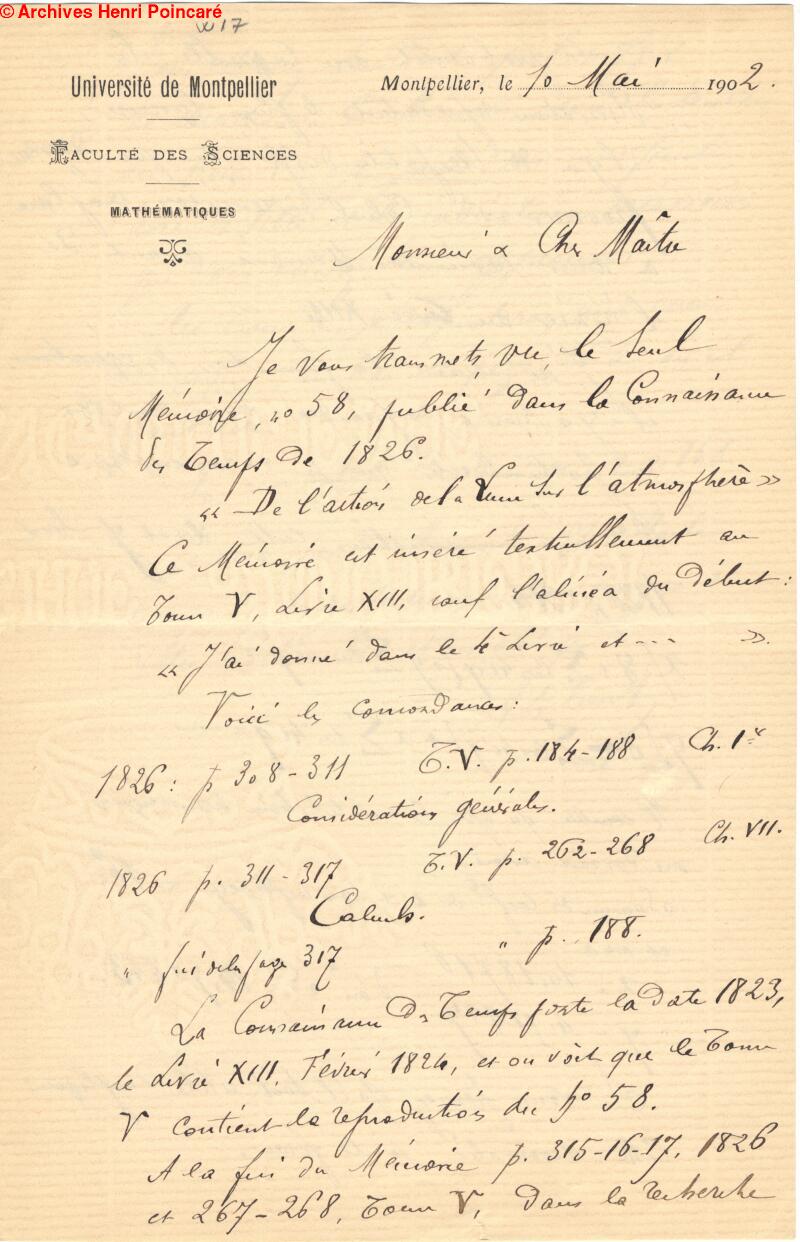 © Archives Henri Poincaré
17
Université de Montpellier
Montpellier, le 10 Mai 1902.
FACULTÉ DES SCIENCES
MATHÉMATIQUES
Monsieur & Cher Maître
Je vous transmets, vu, le seul
Mémoire, no 58, publié dans la Connaissance
des Temps de 1826.
« De l'action de la Lune sur l'atmosphère »
Ce Mémoire est inséré textuellement au
Tome V, Livre XIII, sauf l'alinéa du début :
« J'ai donné dans le 4e Livre et --- ».
Voici les concordances :
1826 : p 308-311 T.V. p. 184-188 Ch. 1er
Considérations générales.
1826 p. 311-317 T.V. p. 262-268 Ch. VII.
Calculs.
" fin de la page 317 " p. 188.
La Connaissance des Temps porte la date 1823,
le Livre XIII, Février 1824, et on voit que le Tome
V contient la reproduction du no 58.
A la fin du Mémoire p. 315-16-17, 1826
et 267-268, Tome V, dans la recherche